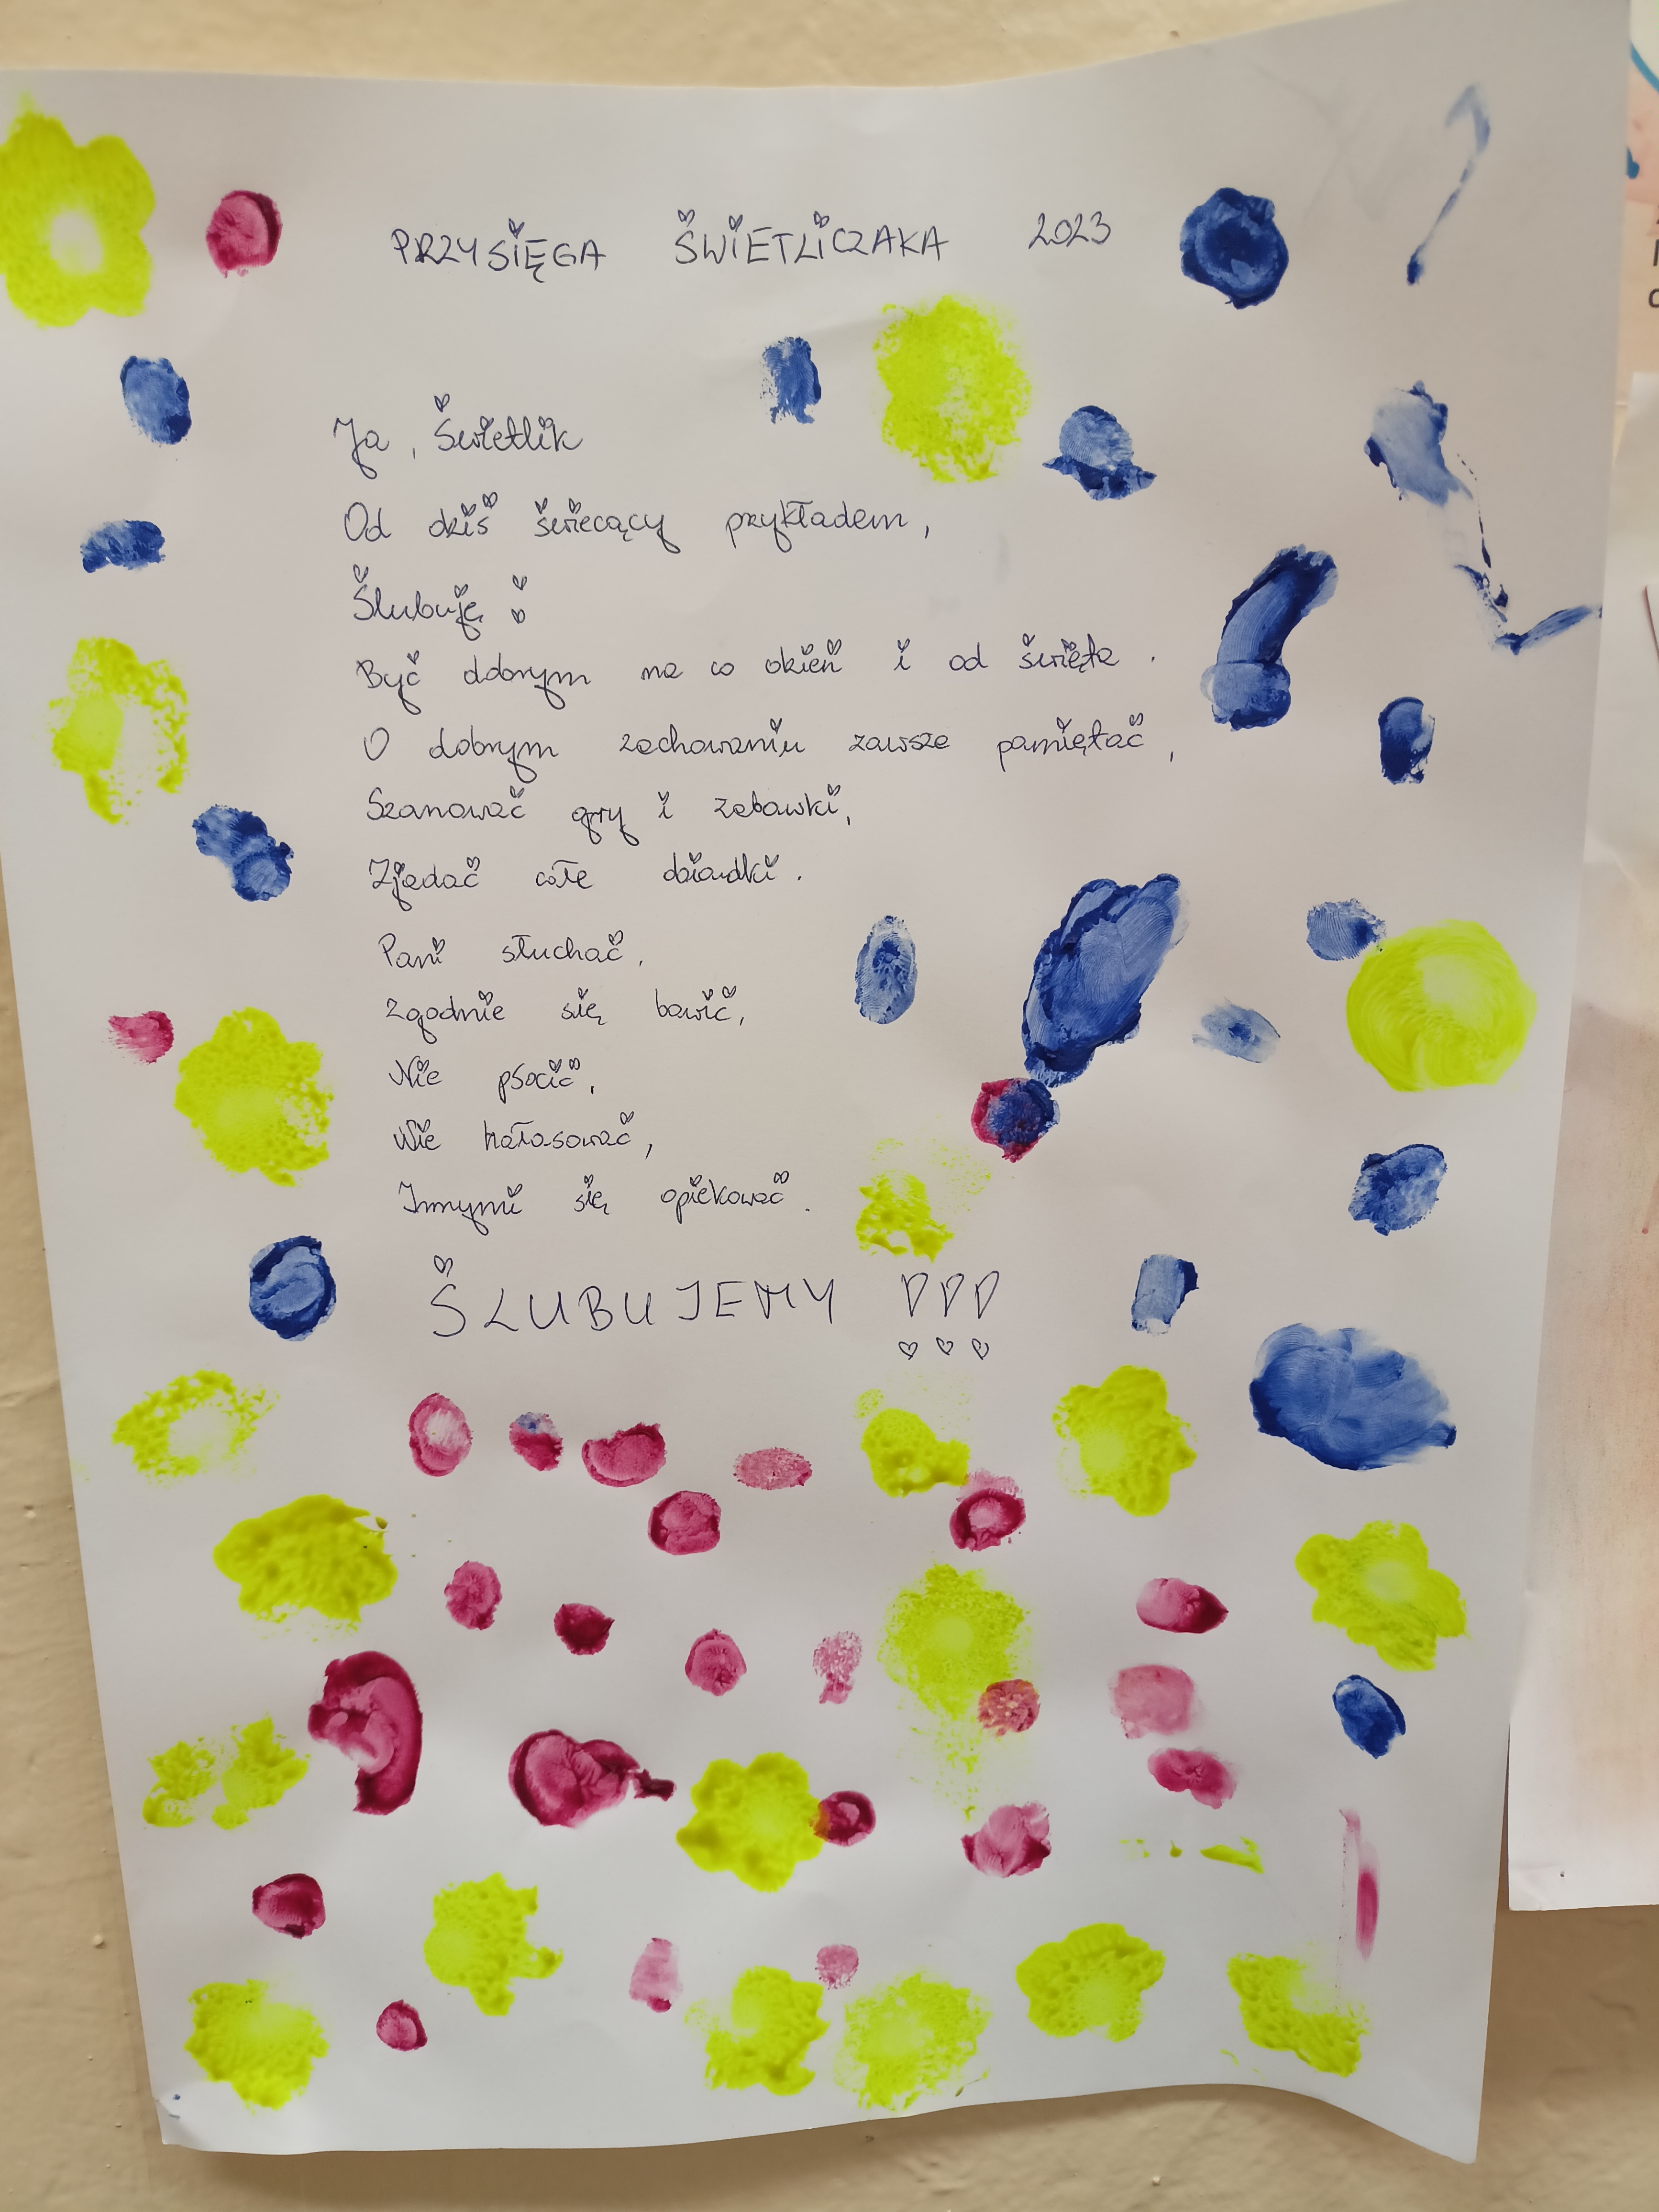 PRZYSIĘGA ŚWIETLICZAKA 2023
Ja, Świetlik
Od dziś świecący przykładem,
Ślubuję:
Być dobrym na co dzień i od święta.
O dobrym zachowaniu zawsze pamiętać,
Szanować gry i zabawki,
Zjadać całe obiadki.
Pani słuchać,
Zgodnie się bawić,
Nie psocić,
Nie hałasować,
Innymi się opiekować.
ŚLUBUJEMY !!!